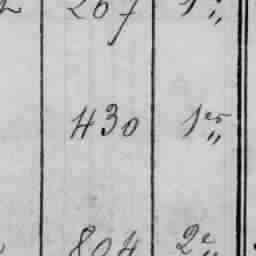 267 1 „
430 1er „
804 2e „